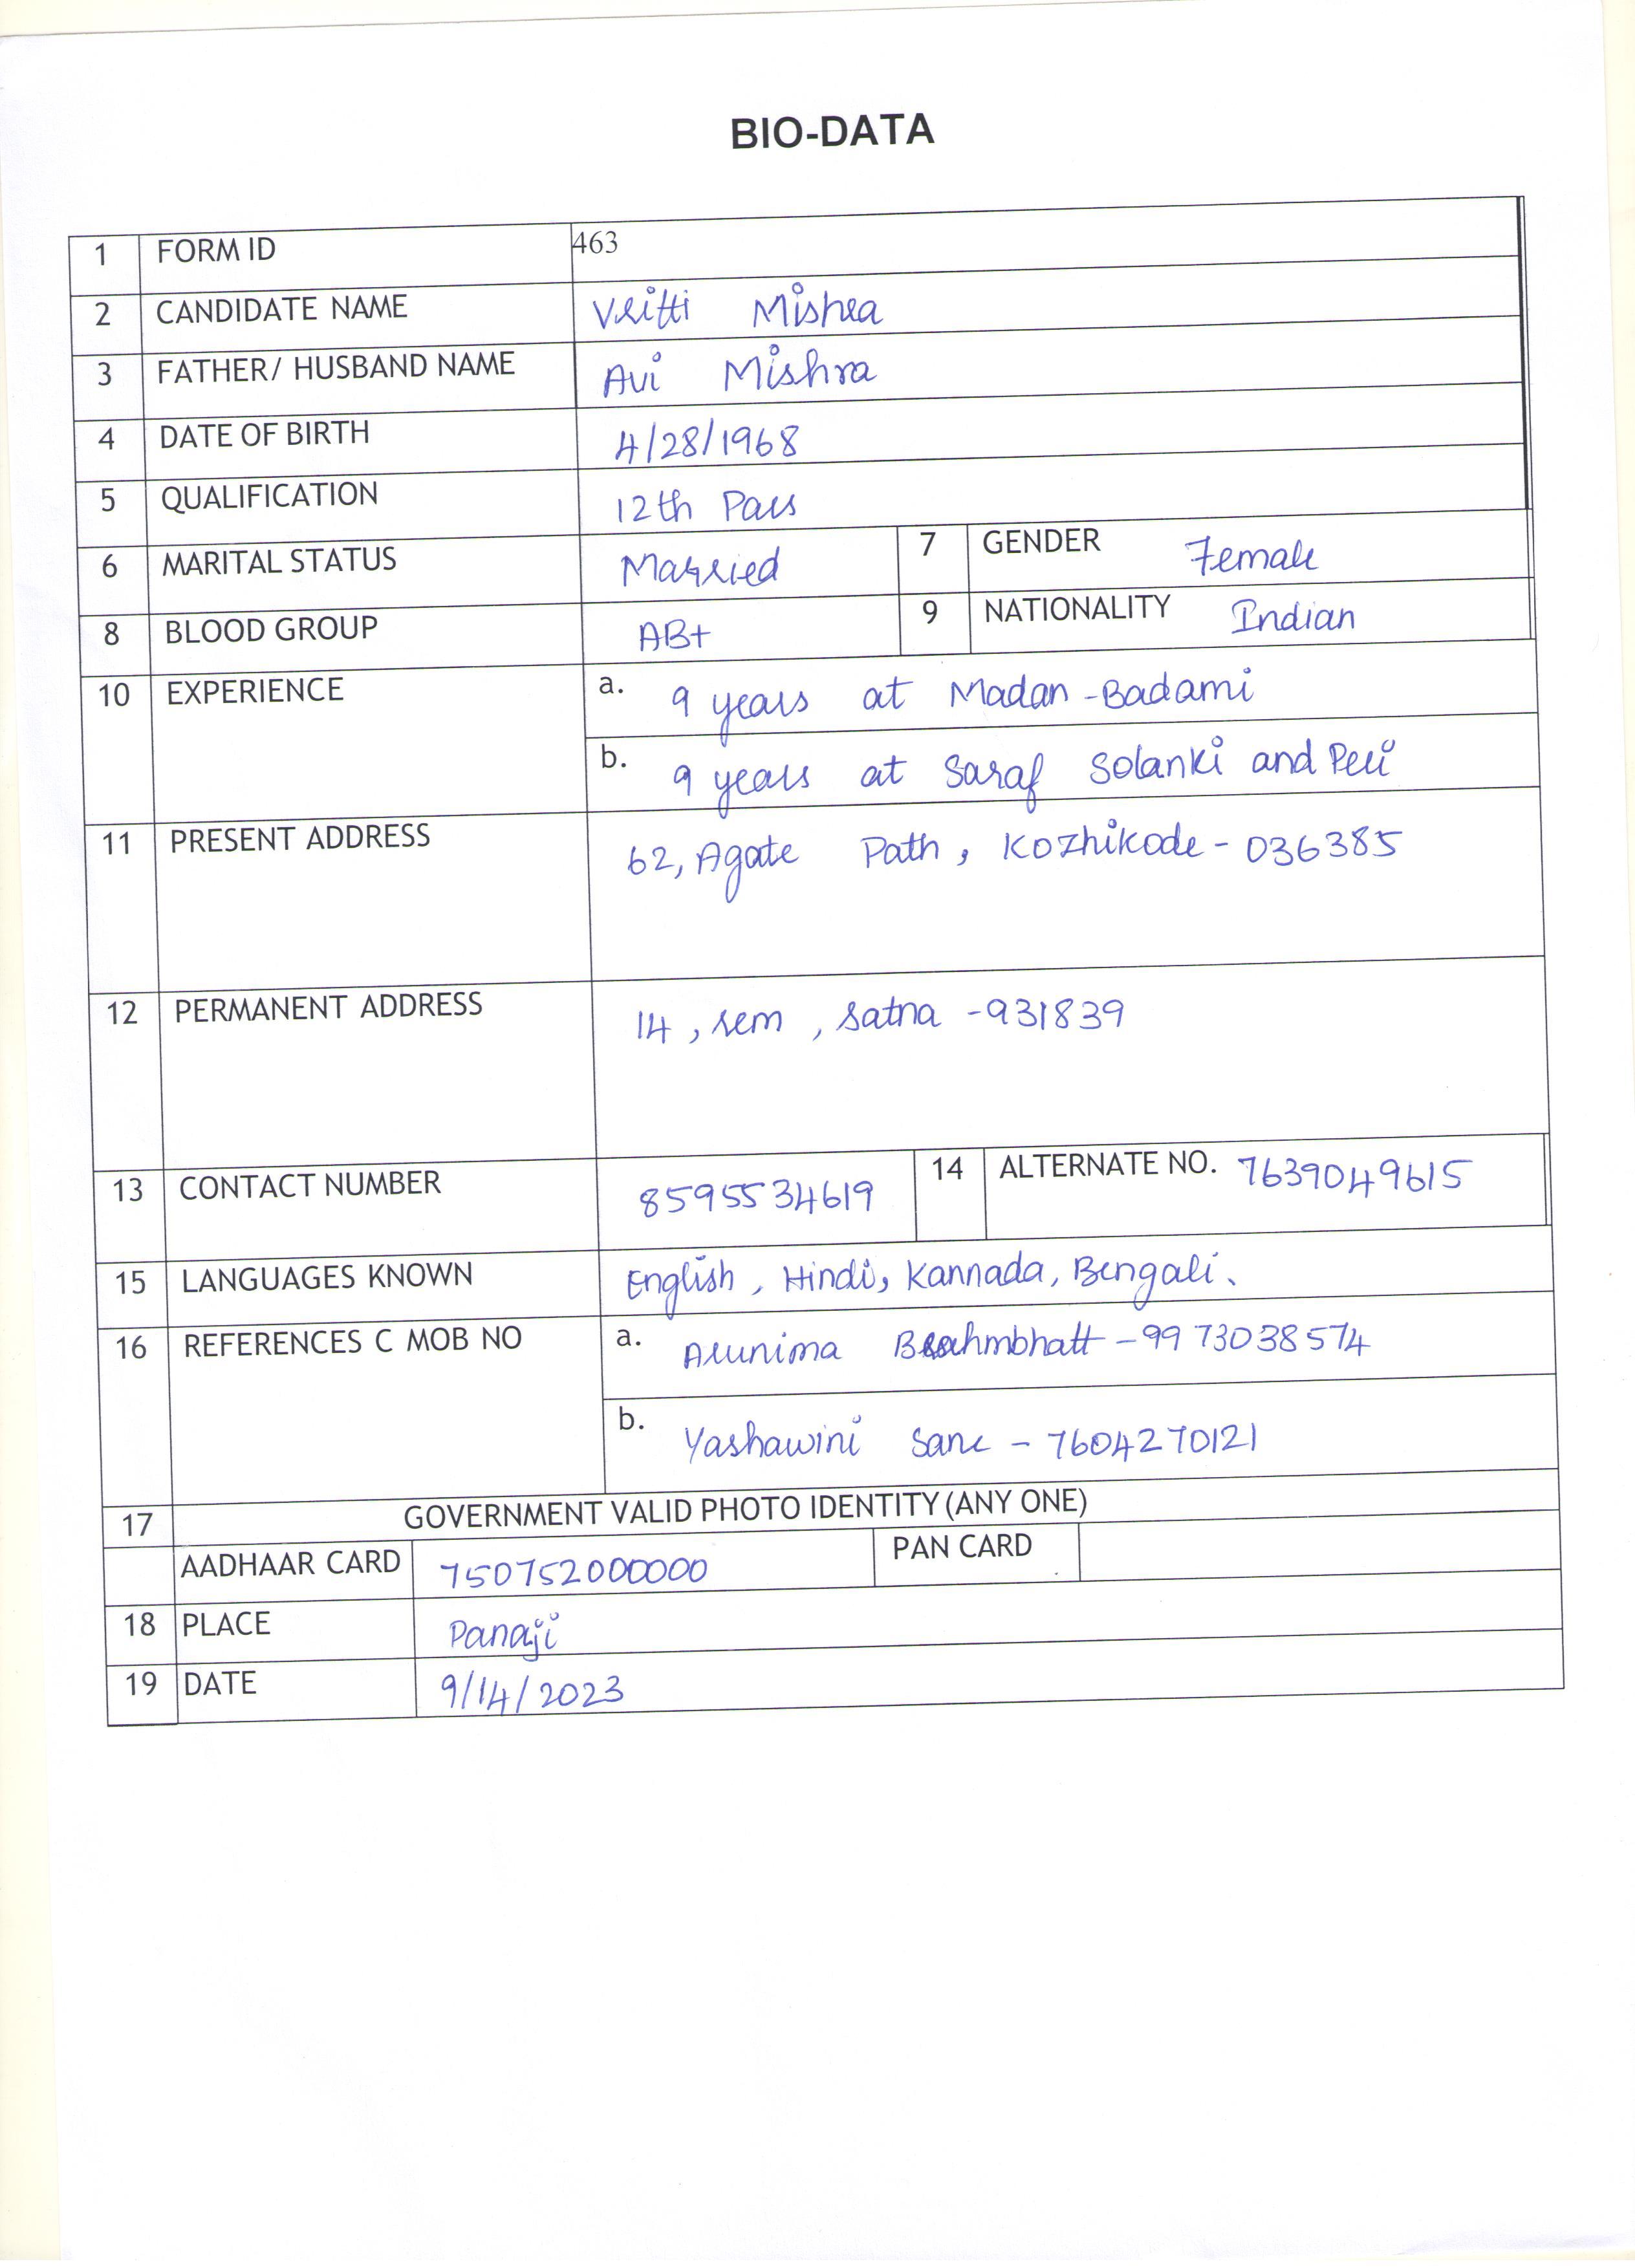 BIO-DATA
1 FORM ID 463
2 CANDIDATE NAME Vritti Mishra
3 FATHER/ HUSBAND NAME Avi Mishra
4 DATE OF BIRTH 4/28/1968
5 QUALIFICATION 12th Pass
6 MARITAL STATUS Married 7 GENDER Female
8 BLOOD GROUP AB+ 9 NATIONALITY Indian
10 EXPERIENCE a. 9 years at Madan-Badami
b. 9 years at Saraf Solanki and Peri
11 PRESENT ADDRESS 62, Agate Path, Kozhikode - 036385
12 PERMANENT ADDRESS 14, sem, Satna - 931839
13 CONTACT NUMBER 8595534619 14 ALTERNATE NO. 7639049615
15 LANGUAGES KNOWN English, Hindi, Kannada, Bengali.
16 REFERENCES C MOB NO a. Arunima Brahmbhatt - 9973038574
b. Yashawini Sane - 7604270121
17 GOVERNMENT VALID PHOTO IDENTITY (ANY ONE)
AADHAAR CARD 750752000000 PAN CARD
18 PLACE Panaji
19 DATE 9/14/2023